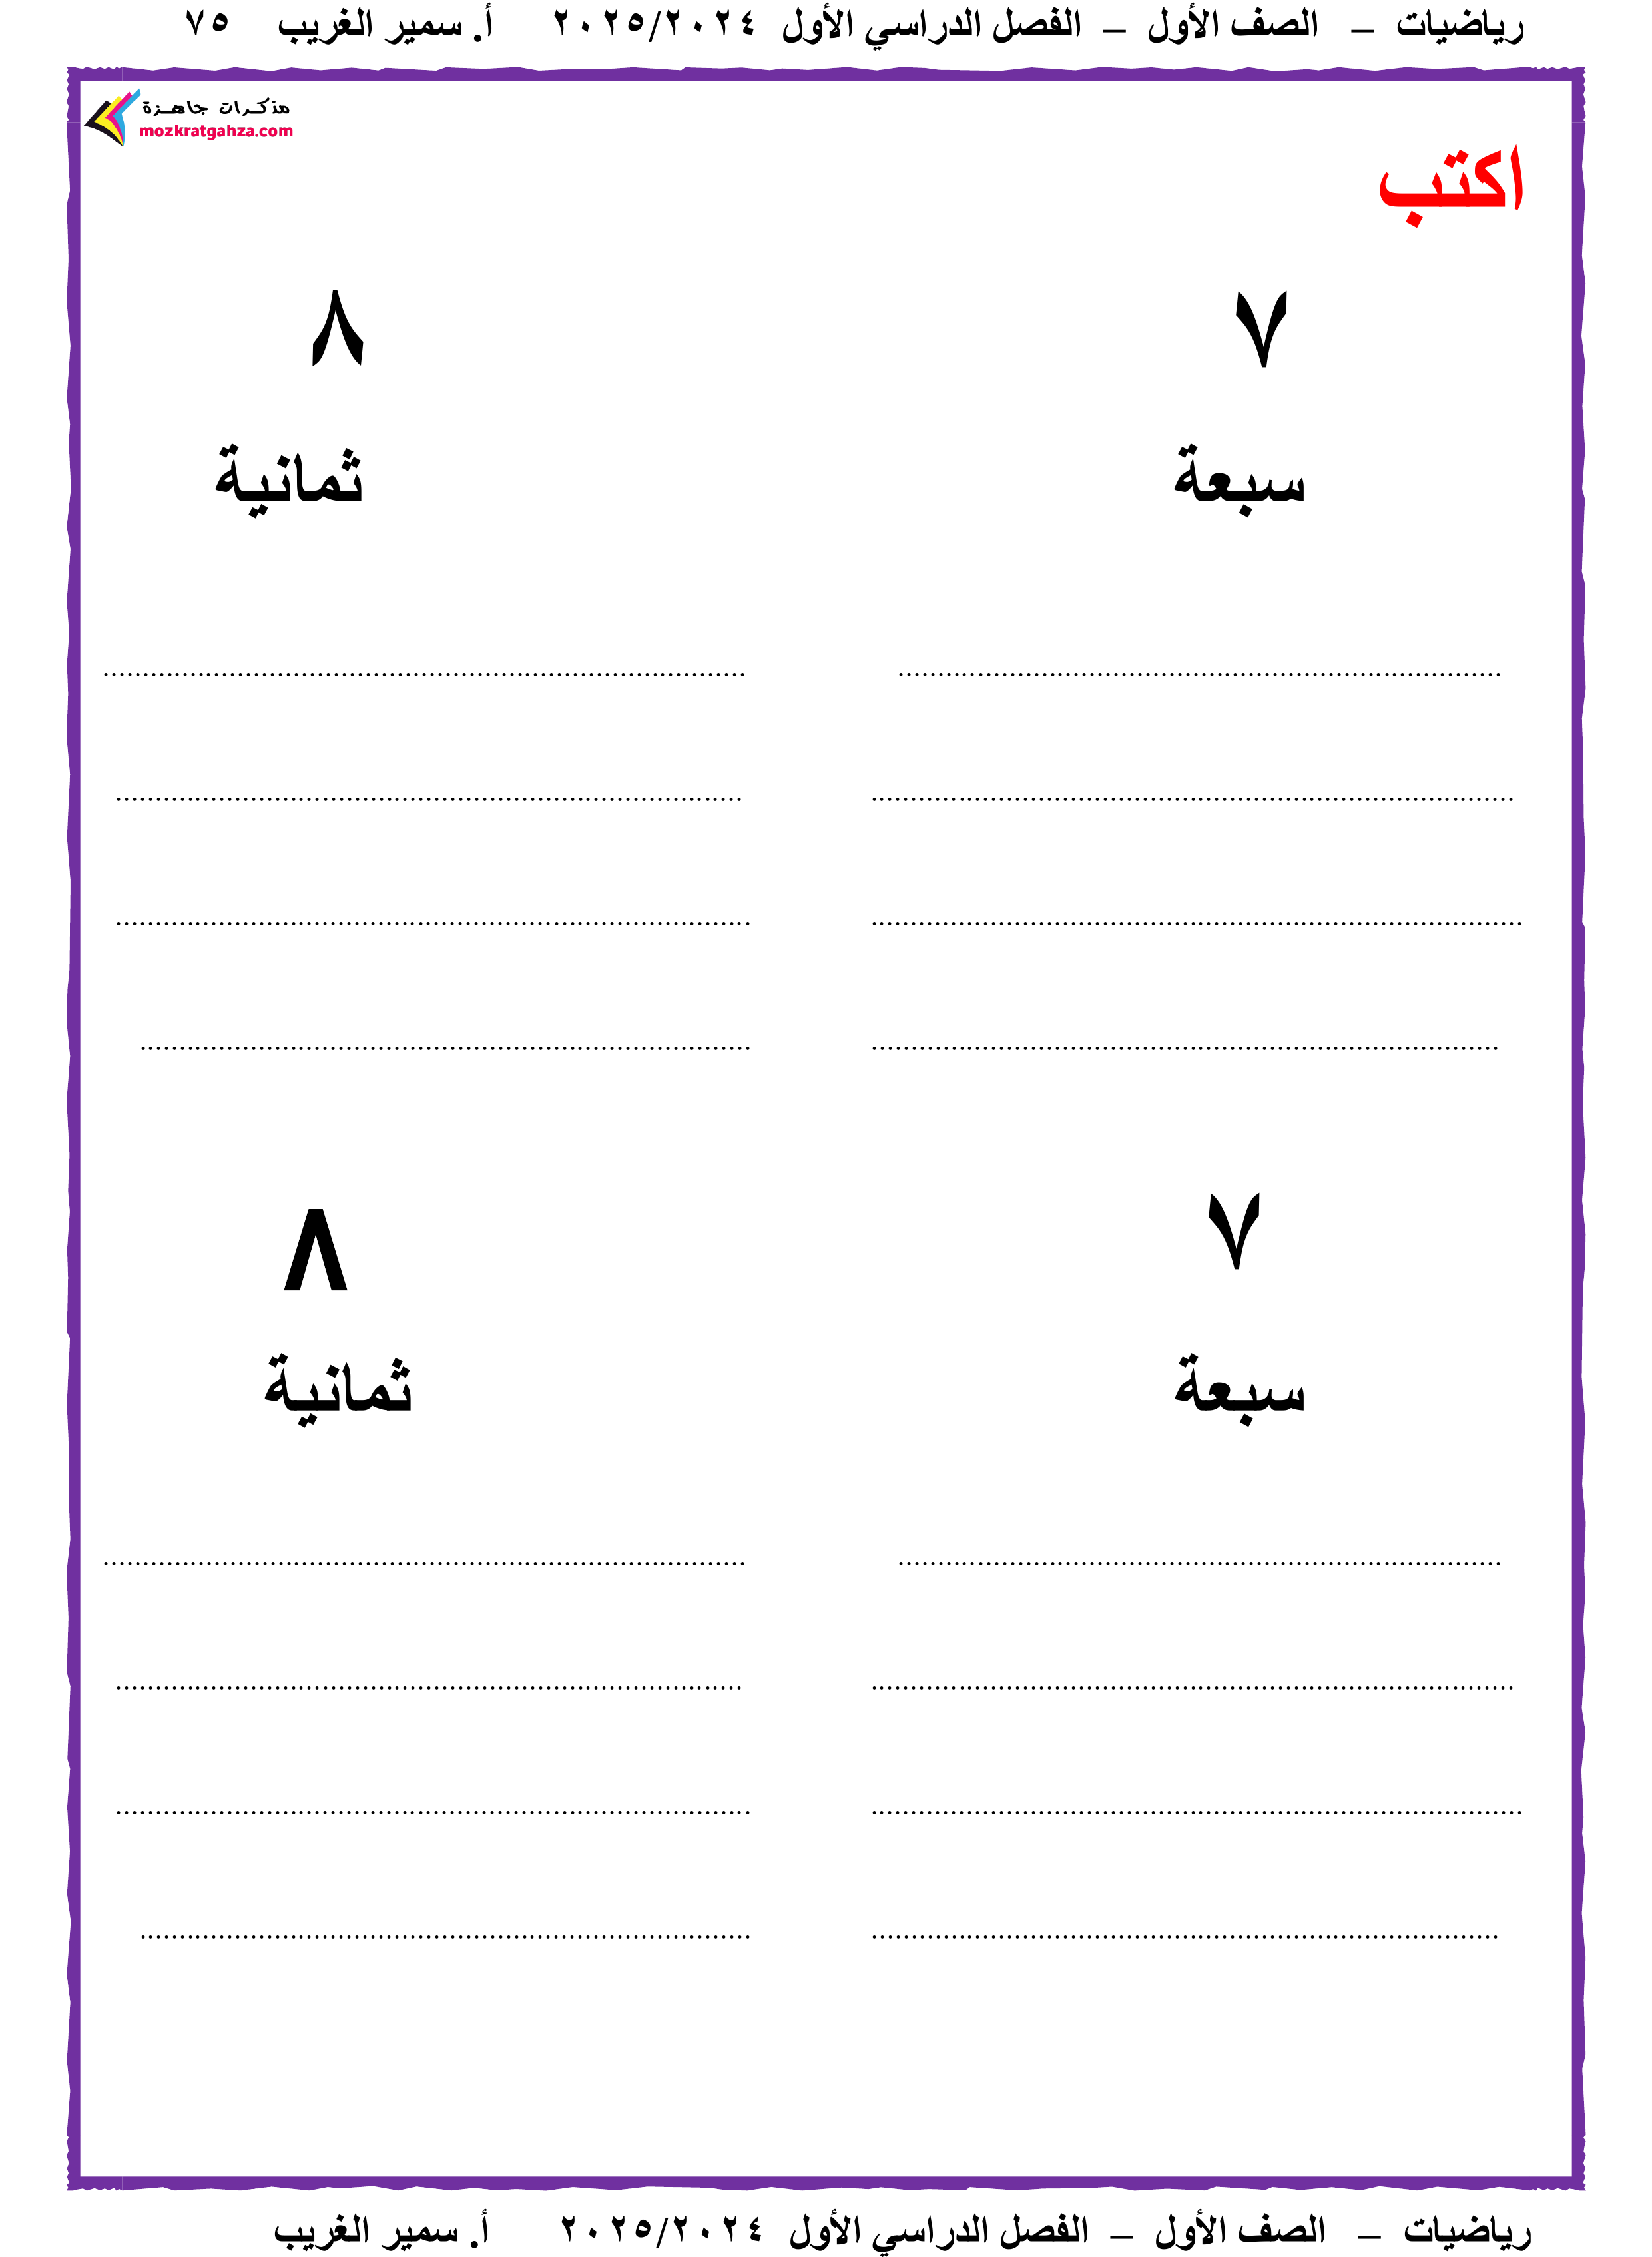 رياضيات – الصف الأول – الفصل الدراسي الأول ٢٠٢٥/٢٠٢٤ أ. سمير الغريب ٧٥
مذكرات جاهزة
mozkratgahza.com
اكتب
٧ ٨
سبعة ثمانية
٧ ٨
سبعة ثمانية
رياضيات – الصف الأول – الفصل الدراسي الأول ٢٠٢٥/٢٠٢٤ أ. سمير الغريب